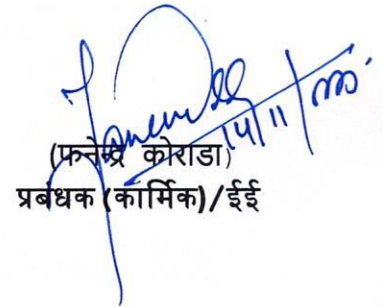 14/11/
(फनेन्द्र कोराडा)
प्रबंधक (कार्मिक)/ईई